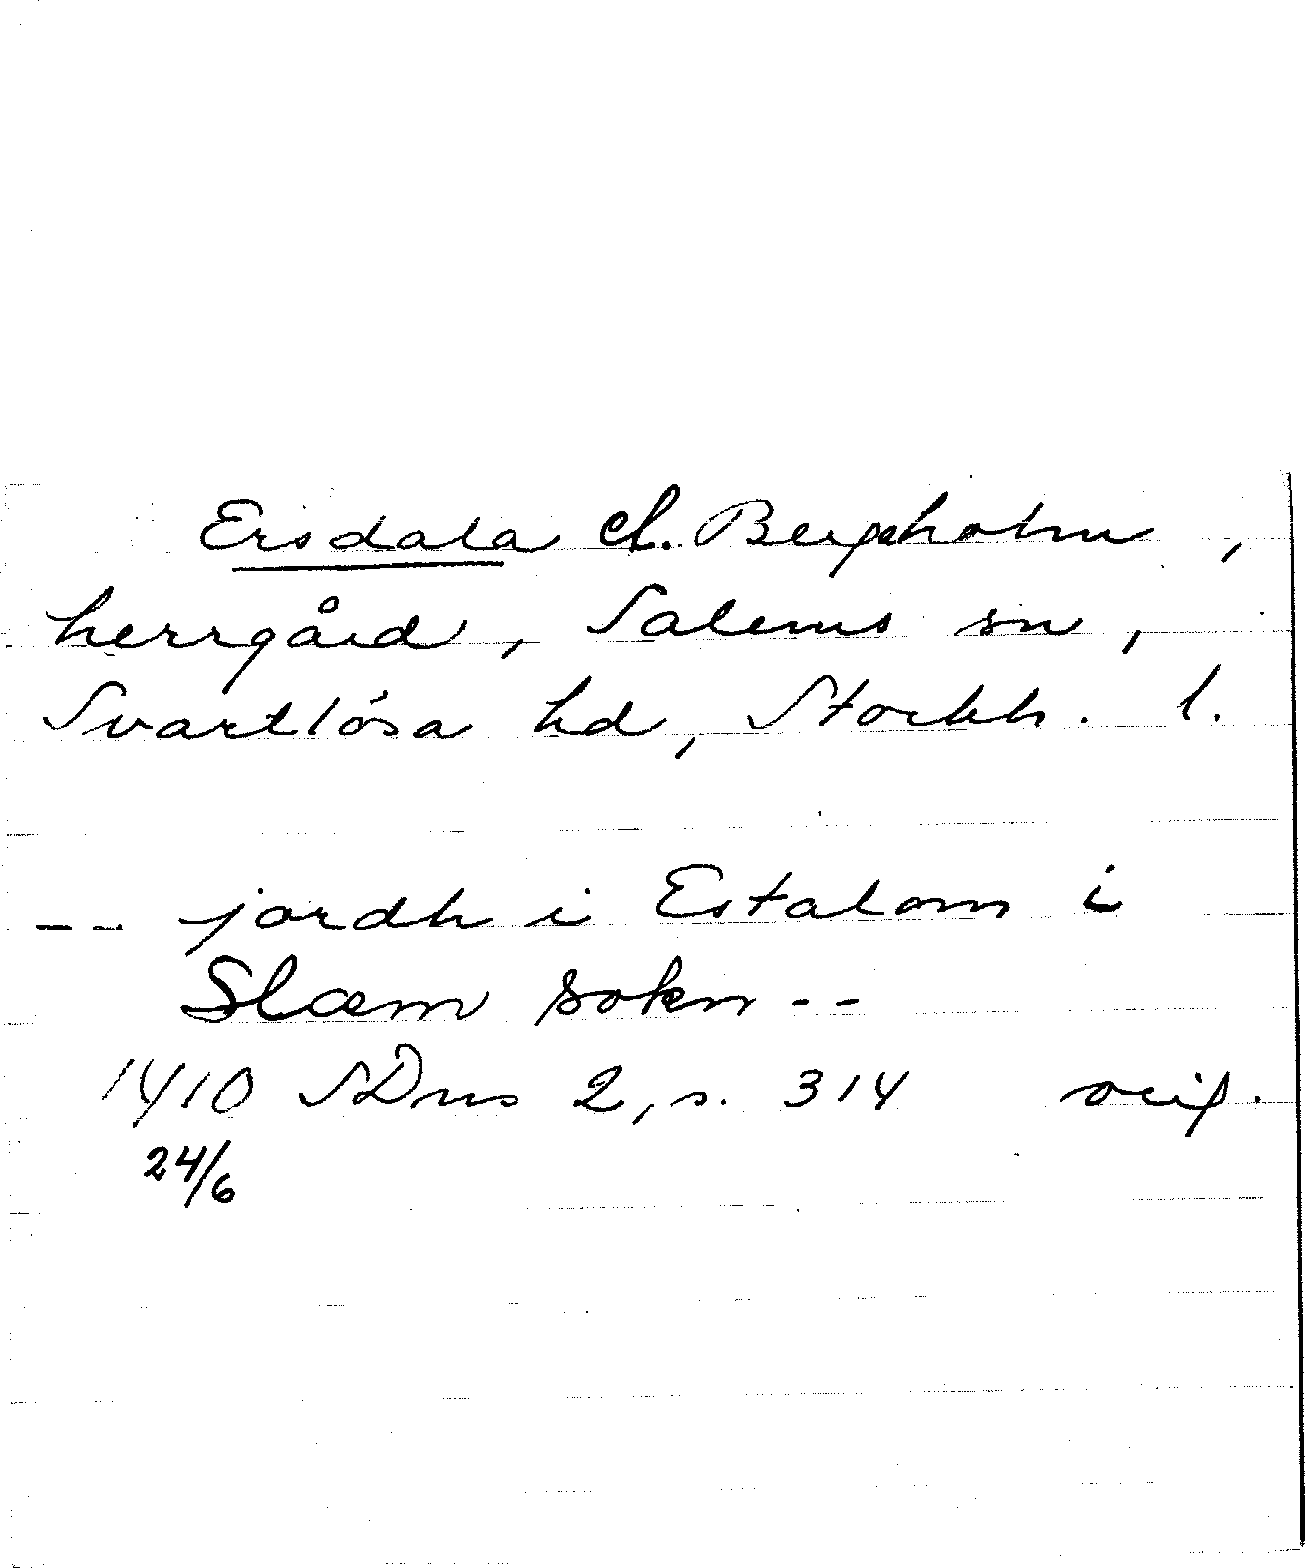 Ersdala el. Bergaholm,
herrgård, Salems sn,
Svartlösa hd, Stockh. l.
-- jordh i Estalom i
Slæm sokn --
1410 SDns 2, s. 314 orig.
24/6